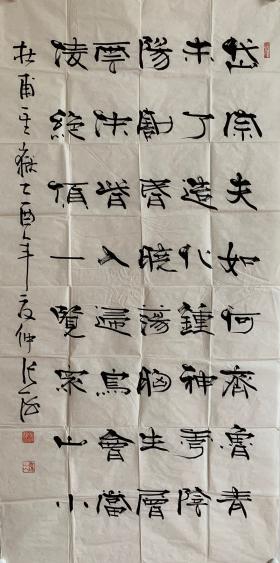 岱宗夫如何齊魯青
未了造化鍾神秀陰
陽割昏曉蕩胸生層
雲決眥入歸鳥會當
凌絕頂一覽眾山小
杜甫望嶽酉年夏仲